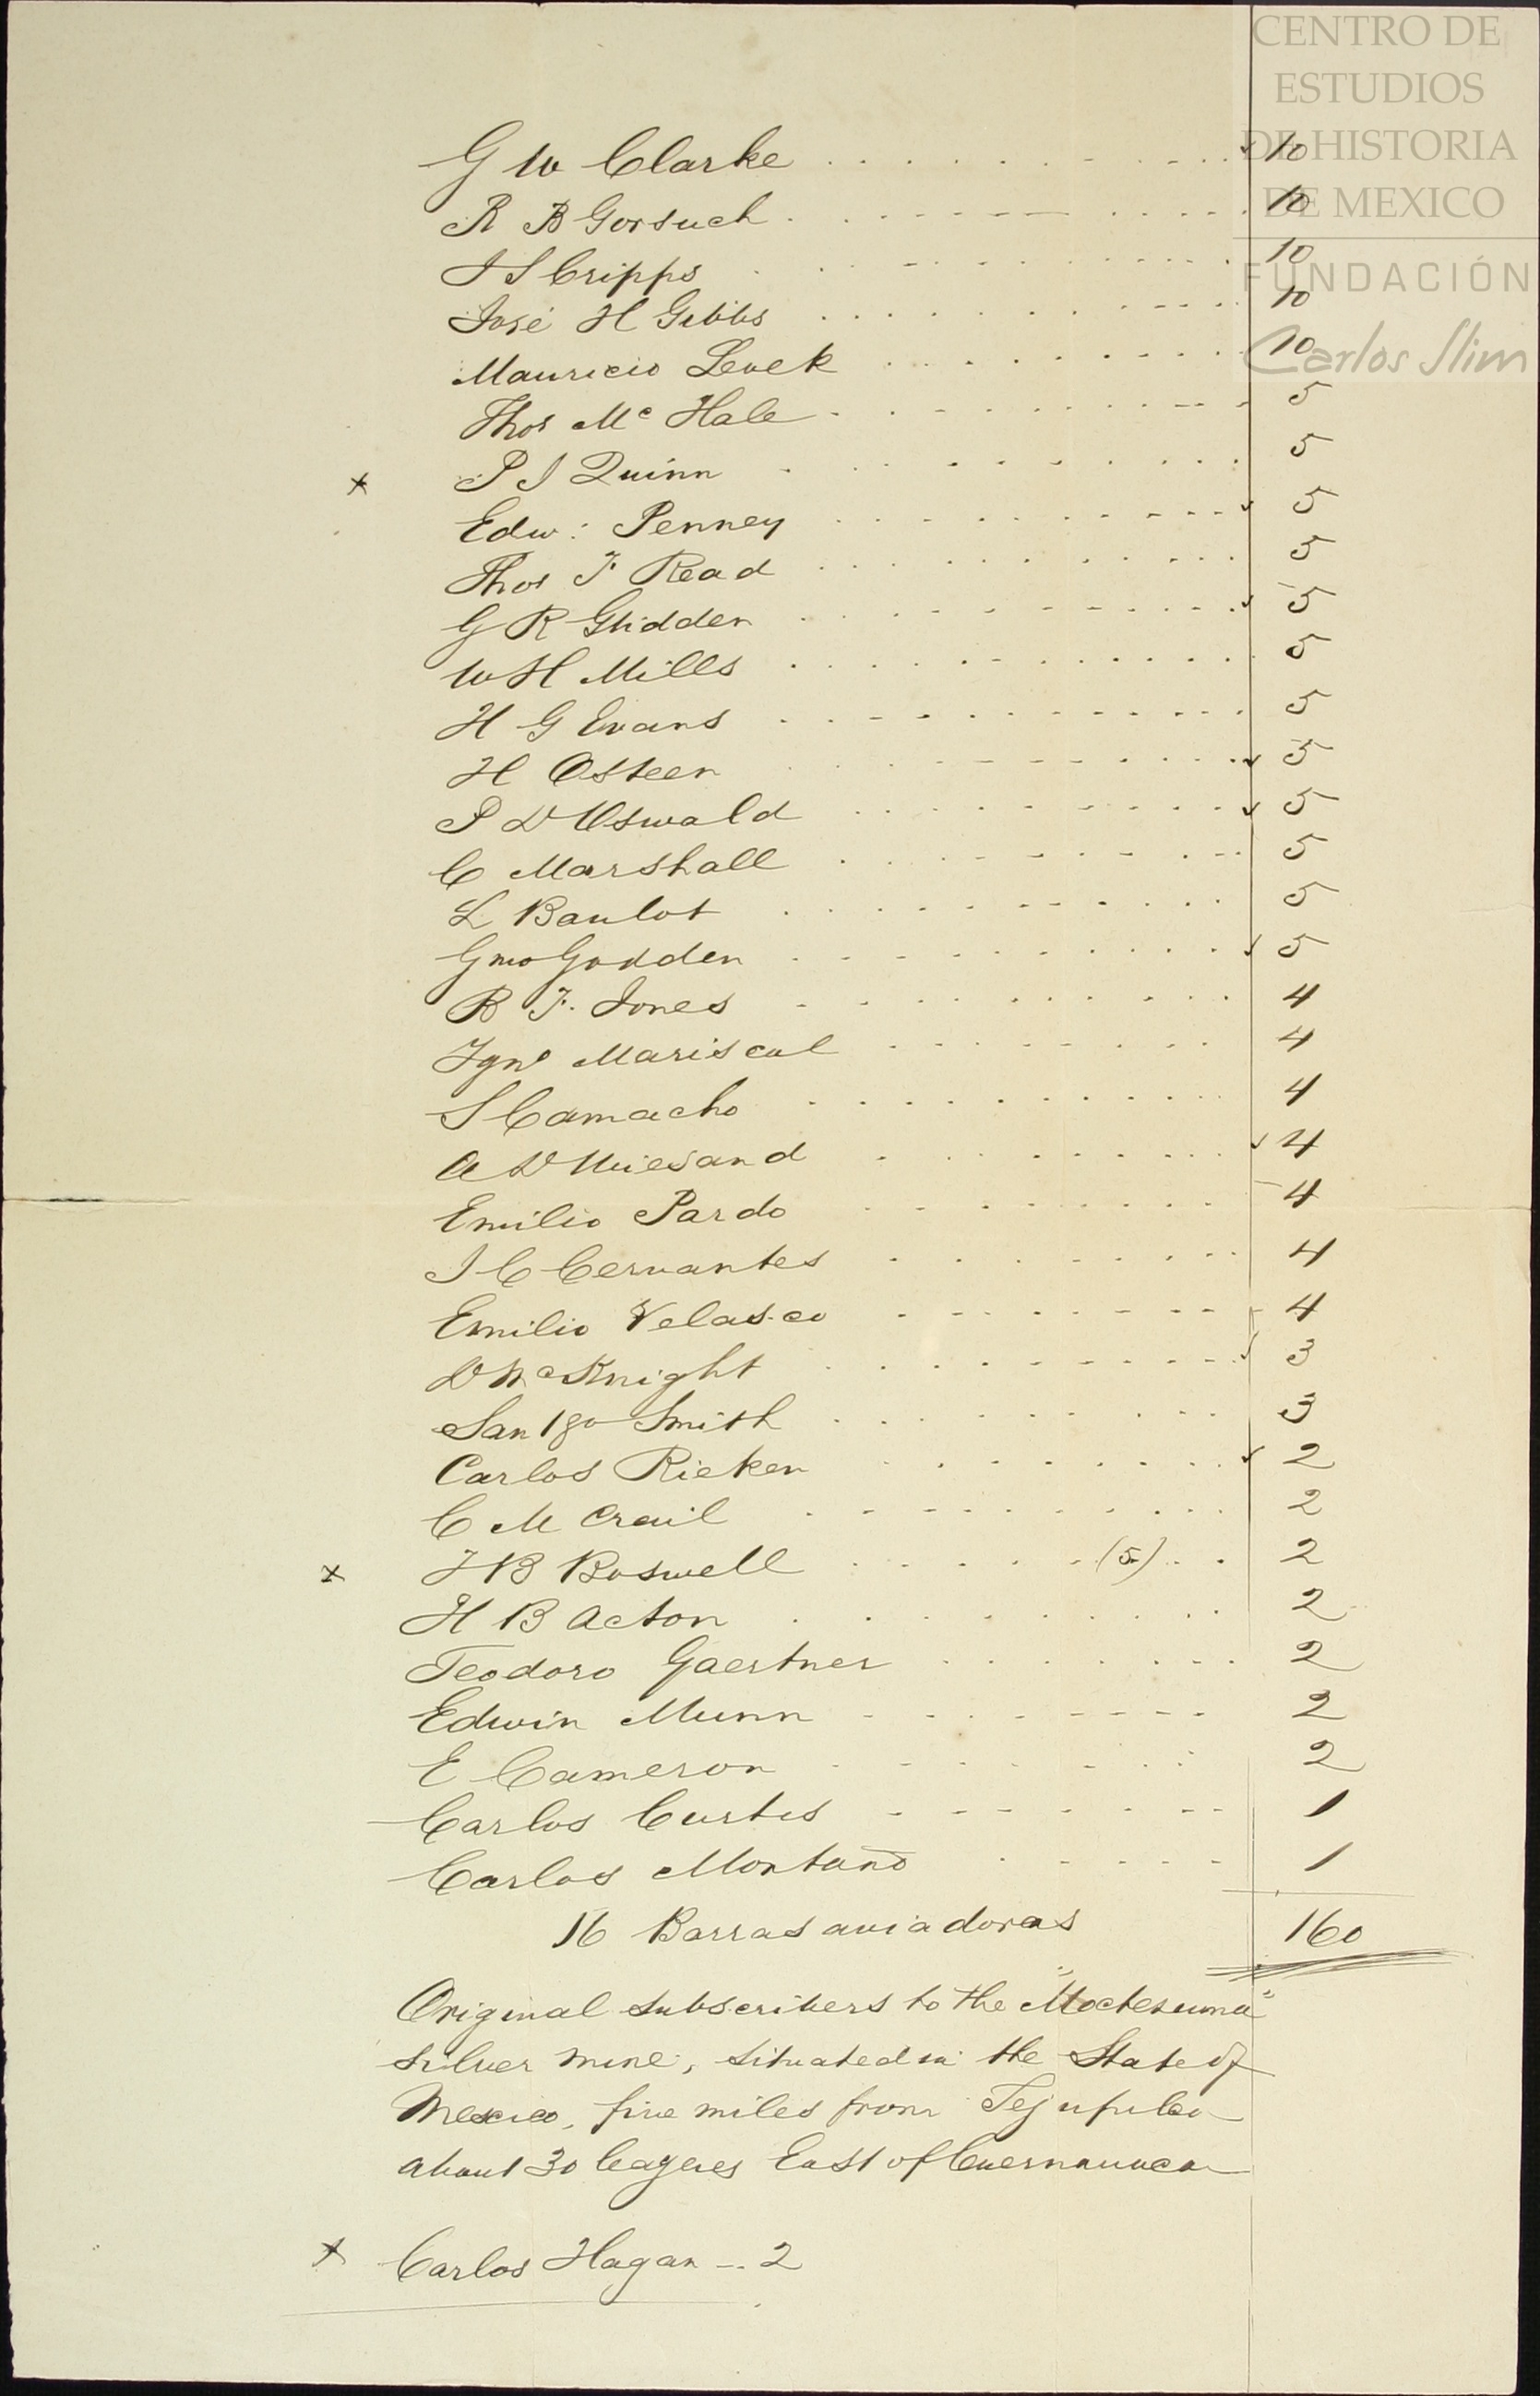 CENTRO DE
ESTUDIOS
DE HISTORIA
DE MEXICO
FUNDACIÓN
Carlos Slim
G W Clarke 10
R B Gorsuch 10
J S Cripps 10
José H Gibbs 10
Mauricio Levek 10
Thos Mc Hale 5
x P J Quinn 5
Edw: Penney 5
Thos F Read 5
G R Glidden 5
W H Mills 5
H G Evans 5
H Osteen 5
P D Oswald 5
C Marshall 5
L Baulot 5
Gmo Godden 5
R F. Jones 4
Igno Mariscal 4
S Camacho 4
A D 4
Emilio Pardo 4
J C Cervantes 4
Emilio Velasco 4
D McKnight 3
Santgo Smith 3
Carlos Rieken 2
C M Crail 2
x J B Boswell (5) 2
H B Acton 2
Teodoro Gaertner 2
Edwin Munn 2
E Cameron 2
Carlos Curtis 1
Carlos Montaño 1
16 Barras aviadoras 160
Original subscribers to the "Moctesuma"
silver mine, situated in the State of
Mexico, five miles from Tejupilco
about 30 leagues East of Cuernavaca
x Carlos Hagan - 2